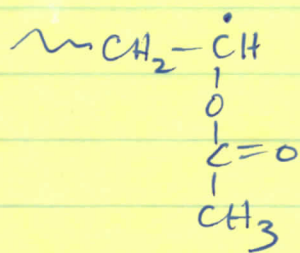 CH₂–ĊH
O
C=O
CH₃